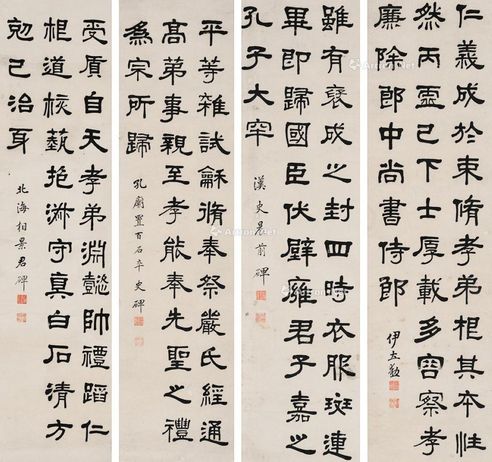 仁義成於束脩孝弟根其本性
然丙靈已下士厚載多容察孝
廉除郎中尚書侍郎
伊立勳
雖有褒成之封四時衣服斑連
畢即歸國臣伏璧雍君子嘉之
孔子大宰
漢史晨前碑
平等雜試龢脩奉祭嚴氏經通
高第事親至孝能奉先聖之禮
為宗所歸
孔廟置百石卒史碑
受質自天孝弟淵懿帥禮蹈仁
根道核藝抱淑守真白石清方
剋己治身
北海相景君碑